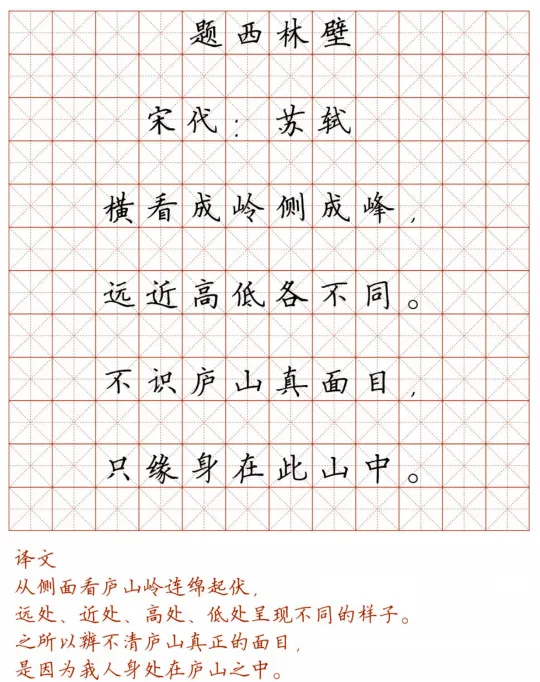 题西林壁
宋代：苏轼
横看成岭侧成峰，
远近高低各不同。
不识庐山真面目，
只缘身在此山中。
译文
从侧面看庐山岭连绵起伏，
远处、近处、高处、低处呈现不同的样子。
之所以辨不清庐山真正的面目，
是因为我人身处在庐山之中。